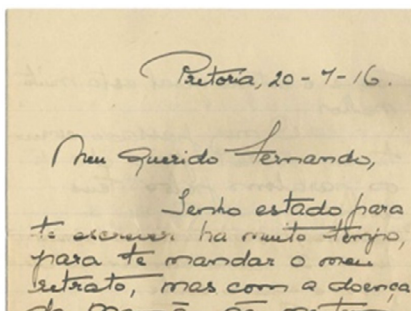 Pretoria, 20-7-16.
Meu Querido Fernando,
Tenho estado para
te escrever ha muito tempo,
para te mandar o meu
retrato, mas com a doença
da Mamã